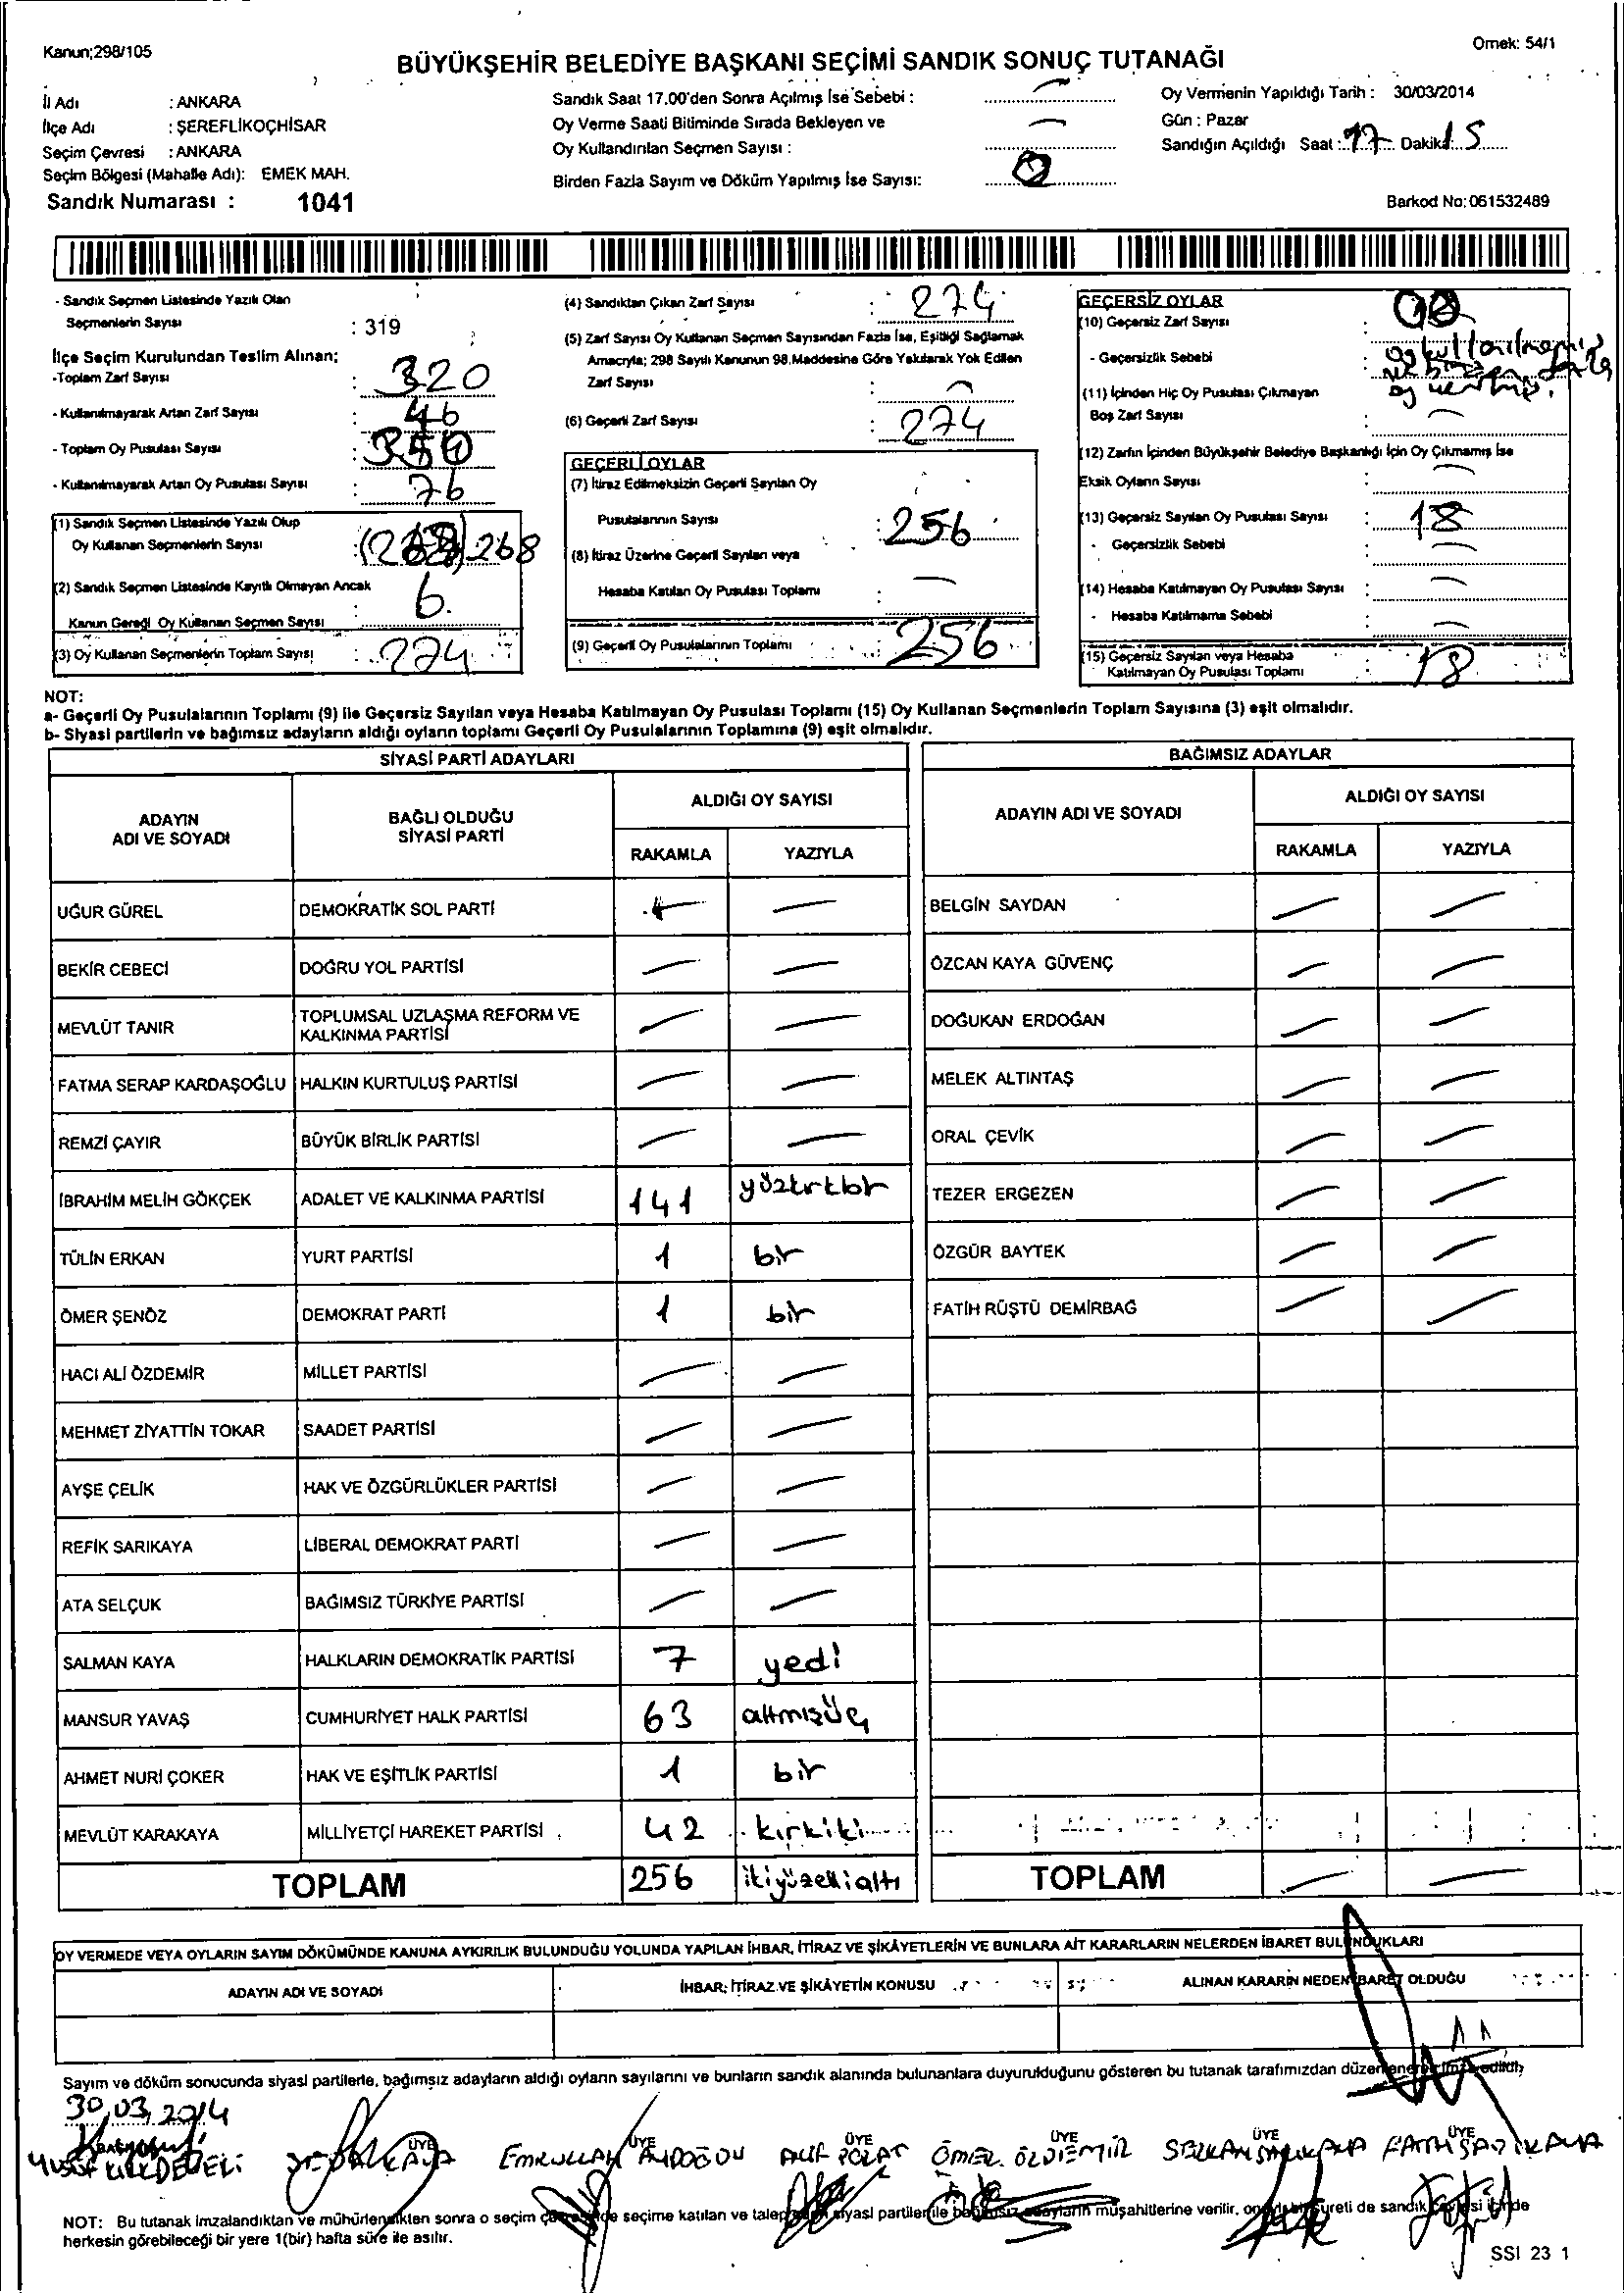 Kanun;298/105
Örnek: 54/1
BÜYÜKŞEHİR BELEDİYE BAŞKANI SEÇİMİ SANDIK SONUÇ TUTANAĞI
İl Adı : ANKARA
İlçe Adı : ŞEREFLİKOÇHİSAR
Seçim Çevresi : ANKARA
Seçim Bölgesi (Mahalle Adı): EMEK MAH.
Sandık Numarası : 1041
Sandık Saat 17.00'den Sonra Açılmış İse Sebebi : —
Oy Verme Saati Bitiminde Sırada Bekleyen ve
Oy Kullandırılan Seçmen Sayısı : —
Birden Fazla Sayım ve Döküm Yapılmış İse Sayısı:
Oy Vermenin Yapıldığı Tarih : 30/03/2014
Gün : Pazar
Sandığın Açıldığı Saat : 17 Dakika: 15
Barkod No: 061532489
- Sandık Seçmen Listesinde Yazılı Olan
Seçmenlerin Sayısı : 319
İlçe Seçim Kurulundan Teslim Alınan;
-Toplam Zarf Sayısı : 320
- Kullanılmayarak Artan Zarf Sayısı : 46
- Toplam Oy Pusulası Sayısı : 350
- Kullanılmayarak Artan Oy Pusulası Sayısı : 76
(1) Sandık Seçmen Listesinde Yazılı Olup
Oy Kullanan Seçmenlerin Sayısı : 268
(2) Sandık Seçmen Listesinde Kayıtlı Olmayan Ancak
Kanun Gereği Oy Kullanan Seçmen Sayısı : 6
(3) Oy Kullanan Seçmenlerin Toplam Sayısı : 274
(4) Sandıktan Çıkan Zarf Sayısı : 274
(5) Zarf Sayısı Oy Kullanan Seçmen Sayısından Fazla İse, Eşitliği Sağlamak
Amacıyla; 298 Sayılı Kanunun 98.Maddesine Göre Yakılarak Yok Edilen
Zarf Sayısı : —
(6) Geçerli Zarf Sayısı : 274
GEÇERLİ OYLAR
(7) İtiraz Edilmeksizin Geçerli Sayılan Oy
Pusulalarının Sayısı : 256
(8) İtiraz Üzerine Geçerli Sayılan veya
Hesaba Katılan Oy Pusulası Toplamı : —
(9) Geçerli Oy Pusulalarının Toplamı : 256
GEÇERSİZ OYLAR
(10) Geçersiz Zarf Sayısı :
- Geçersizlik Sebebi : oy kullanılmamış
oy vermiş.
(11) İçinden Hiç Oy Pusulası Çıkmayan
Boş Zarf Sayısı : —
(12) Zarfın İçinden Büyükşehir Belediye Başkanlığı İçin Oy Çıkmamış İse
Eksik Oyların Sayısı : —
(13) Geçersiz Sayılan Oy Pusulası Sayısı : 18
- Geçersizlik Sebebi : —
(14) Hesaba Katılmayan Oy Pusulası Sayısı : —
- Hesaba Katılmama Sebebi : —
(15) Geçersiz Sayılan veya Hesaba
Katılmayan Oy Pusulası Toplamı : 18
NOT:
a- Geçerli Oy Pusulalarının Toplamı (9) ile Geçersiz Sayılan veya Hesaba Katılmayan Oy Pusulası Toplamı (15) Oy Kullanan Seçmenlerin Toplam Sayısına (3) eşit olmalıdır.
b- Siyasi partilerin ve bağımsız adayların aldığı oyların toplamı Geçerli Oy Pusulalarının Toplamına (9) eşit olmalıdır.
SİYASİ PARTİ ADAYLARI
ADAYIN ADI VE SOYADI
BAĞLI OLDUĞU SİYASİ PARTİ
ALDIĞI OY SAYISI
RAKAMLA YAZIYLA
UĞUR GÜREL DEMOKRATİK SOL PARTİ — —
BEKİR CEBECİ DOĞRU YOL PARTİSİ — —
MEVLÜT TANIR TOPLUMSAL UZLAŞMA REFORM VE KALKINMA PARTİSİ — —
FATMA SERAP KARDAŞOĞLU HALKIN KURTULUŞ PARTİSİ — —
REMZİ ÇAYIR BÜYÜK BİRLİK PARTİSİ — —
İBRAHİM MELİH GÖKÇEK ADALET VE KALKINMA PARTİSİ 141 yüzkırkbir
TÜLİN ERKAN YURT PARTİSİ 1 bir
ÖMER ŞENÖZ DEMOKRAT PARTİ 1 bir
HACI ALİ ÖZDEMİR MİLLET PARTİSİ — —
MEHMET ZİYATTİN TOKAR SAADET PARTİSİ — —
AYŞE ÇELİK HAK VE ÖZGÜRLÜKLER PARTİSİ — —
REFİK SARIKAYA LİBERAL DEMOKRAT PARTİ — —
ATA SELÇUK BAĞIMSIZ TÜRKİYE PARTİSİ — —
SALMAN KAYA HALKLARIN DEMOKRATİK PARTİSİ 7 yedi
MANSUR YAVAŞ CUMHURİYET HALK PARTİSİ 63 altmışüç
AHMET NURİ ÇOKER HAK VE EŞİTLİK PARTİSİ 1 bir
MEVLÜT KARAKAYA MİLLİYETÇİ HAREKET PARTİSİ 42 kırkiki
TOPLAM 256 ikiyüzellialtı
BAĞIMSIZ ADAYLAR
ADAYIN ADI VE SOYADI
ALDIĞI OY SAYISI
RAKAMLA YAZIYLA
BELGİN SAYDAN — —
ÖZCAN KAYA GÜVENÇ — —
DOĞUKAN ERDOĞAN — —
MELEK ALTINTAŞ — —
ORAL ÇEVİK — —
TEZER ERGEZEN — —
ÖZGÜR BAYTEK — —
FATİH RÜŞTÜ DEMİRBAĞ — —
TOPLAM — —
OY VERMEDE VEYA OYLARIN SAYIM DÖKÜMÜNDE KANUNA AYKIRILIK BULUNDUĞU YOLUNDA YAPILAN İHBAR, İTİRAZ VE ŞİKÂYETLERİN VE BUNLARA AİT KARARLARIN NELERDEN İBARET BULUNDUKLARI
ADAYIN ADI VE SOYADI
İHBAR, İTİRAZ VE ŞİKÂYETİN KONUSU
ALINAN KARARIN NEDEN İBARET OLDUĞU
Sayım ve döküm sonucunda siyasi partilerle, bağımsız adayların aldığı oyların sayılarını ve bunların sandık alanında bulunanlara duyurulduğunu gösteren bu tutanak tarafımızdan düzenlenerek imza edildi.
30.03.2014
BAŞKAN ÜYE ÜYE ÜYE ÜYE ÜYE ÜYE
YUSUF EMRULLAH AYDOĞDU POLAT ÖMER ÖZDEMİR SERKAN SARIKAYA FATİH SARIKAYA
NOT: Bu tutanak imzalandıktan ve mühürlendikten sonra o seçim çevresinde seçime katılan ve talep eden siyasi partiler ile bağımsız adayların müşahitlerine verilir, onaylı bir sureti de sandık çevresi içinde
herkesin görebileceği bir yere 1(bir) hafta süre ile asılır.
SSI 23 1